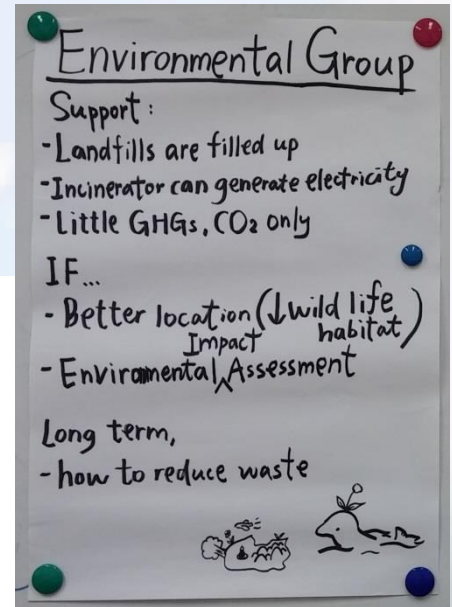 Environmental Group
Support:
-Landfills are filled up
-Incinerator can generate electricity
-Little GHGs, CO₂ only
IF...
- Better location (↓wild life habitat)
- Enviromental Impact Assessment
Long term,
-how to reduce waste